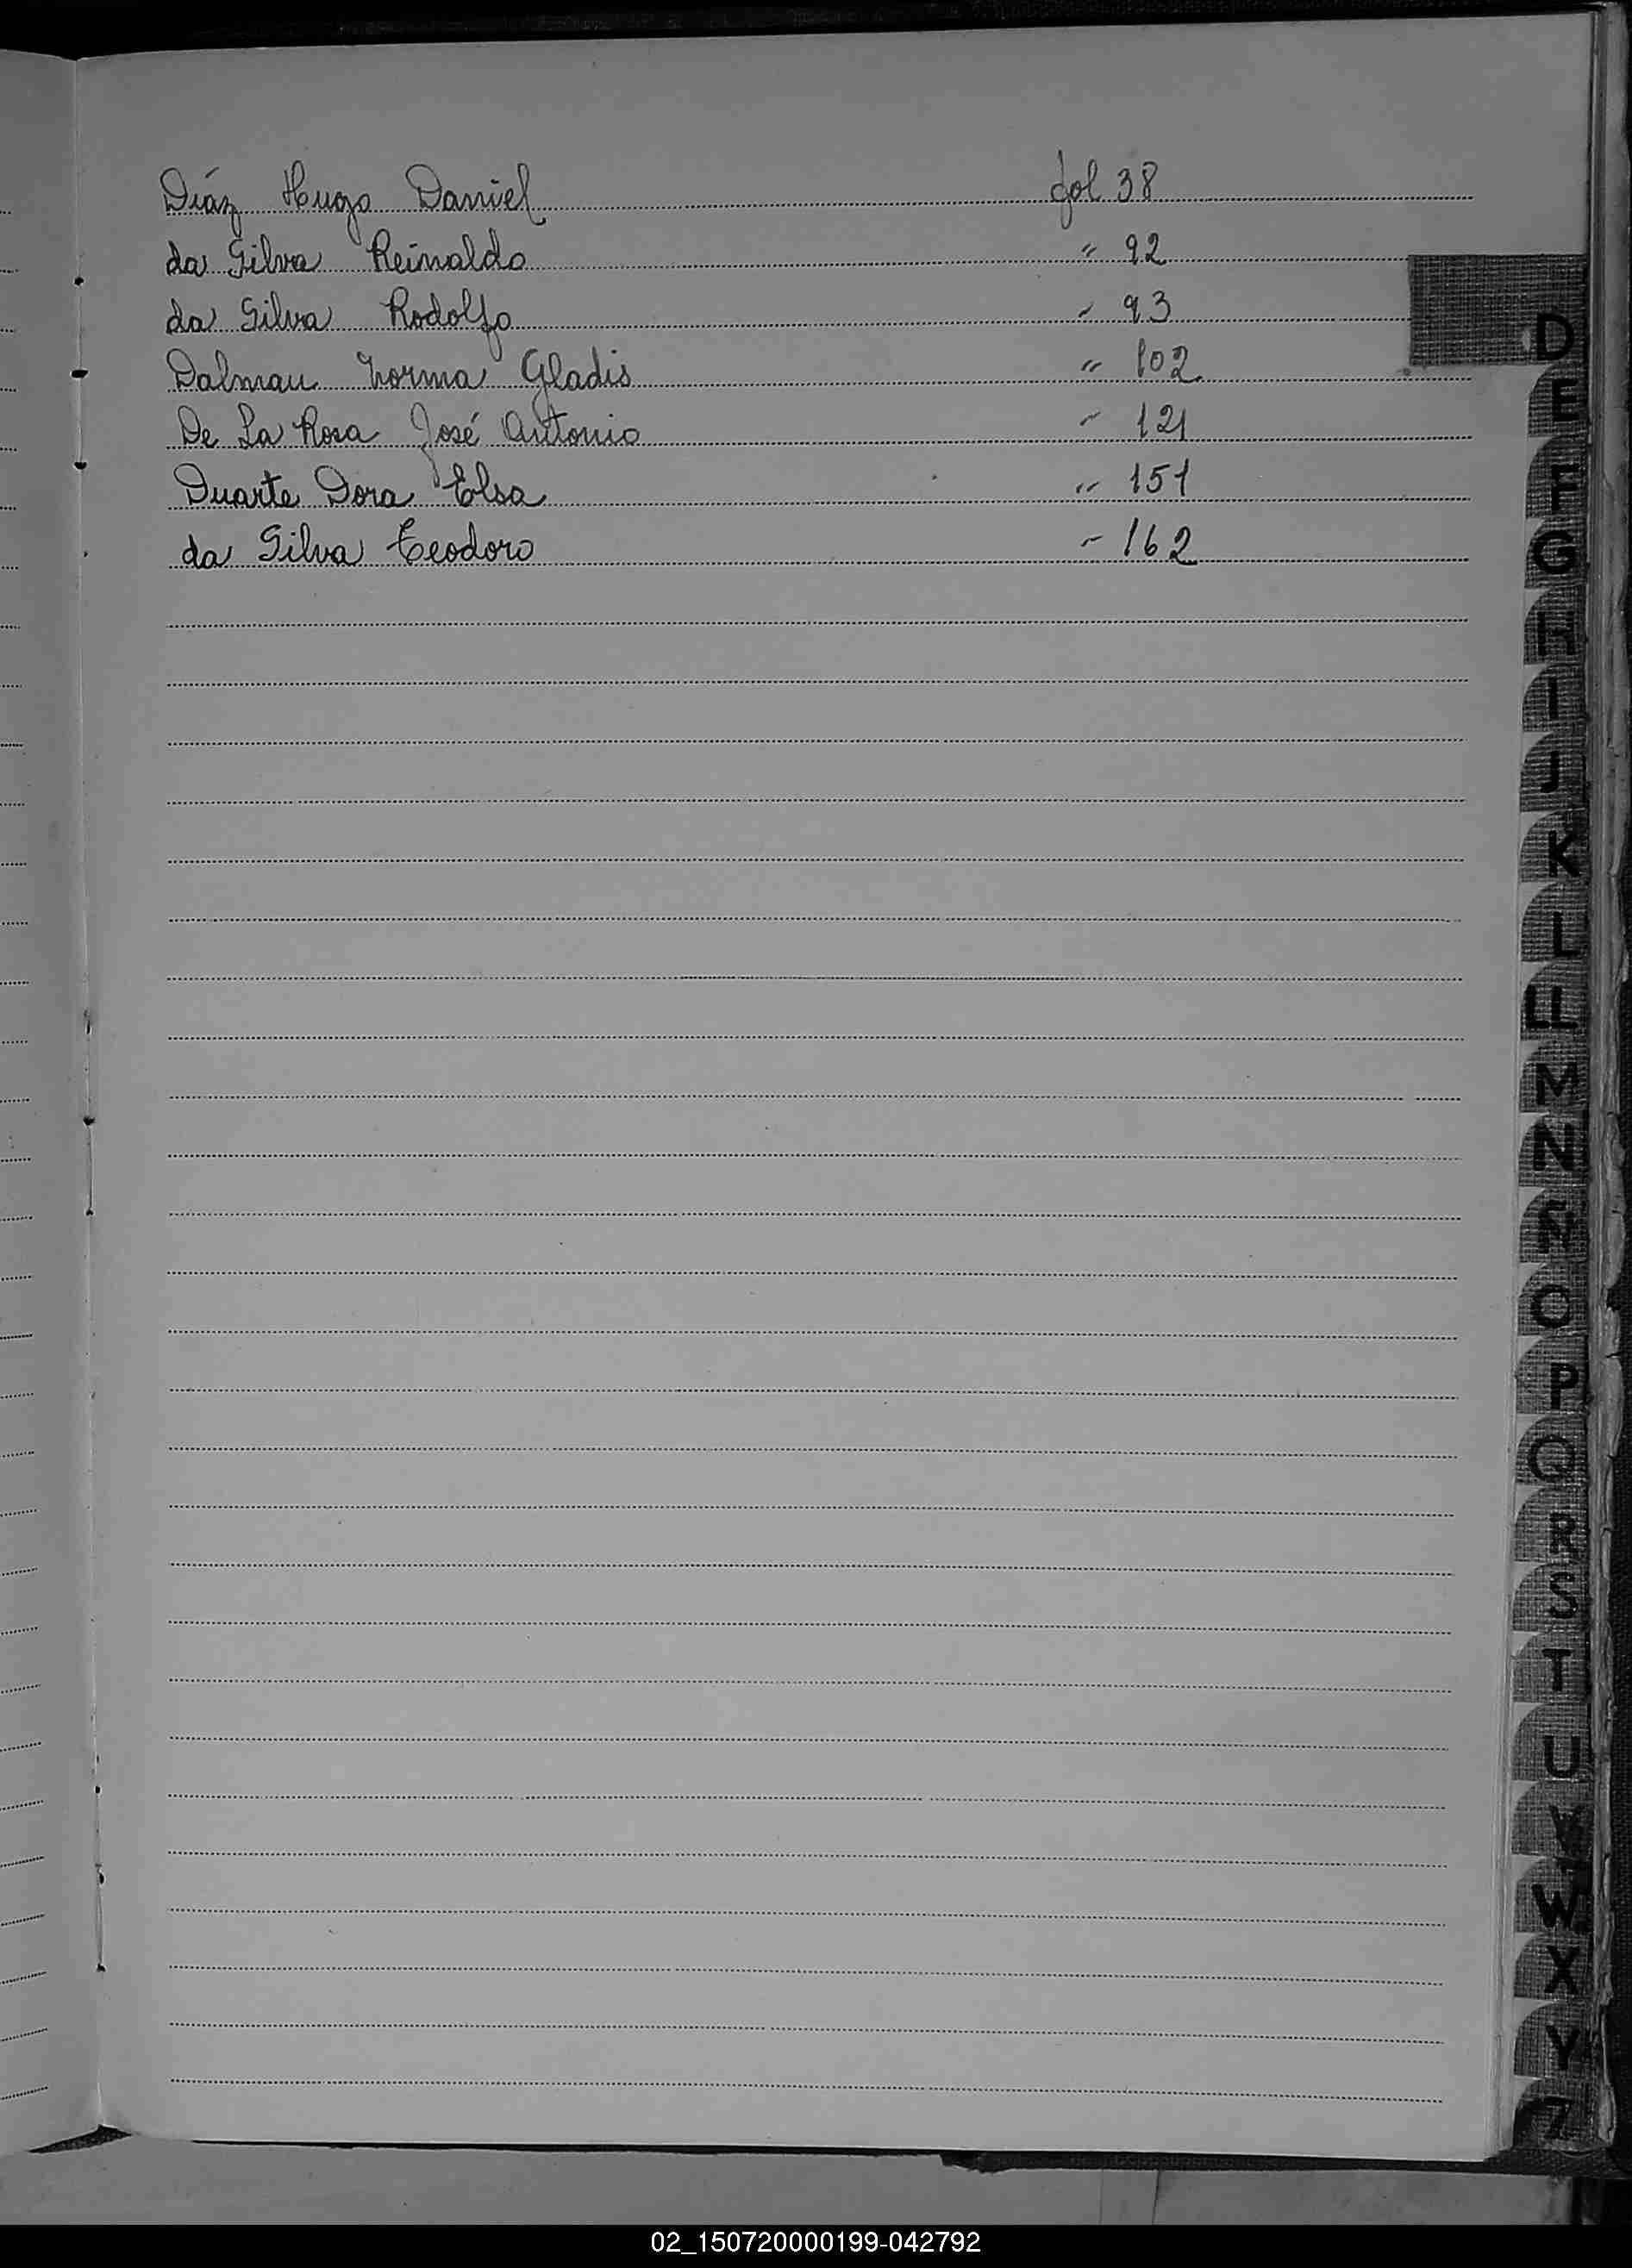 Díaz Hugo Daniel fol 38
da Silva Reinaldo " 92
da Silva Rodolfo " 93
Dalmau Norma Gladis " 102
De La Rosa José Antonio " 121
Duarte Dora Elsa " 151
da Silva Teodoro " 162
D
E
F
G
H
I
J
K
L
LL
M
N
Ñ
O
P
Q
R
S
T
U
V
W
X
Y
Z
02_150720000199-042792